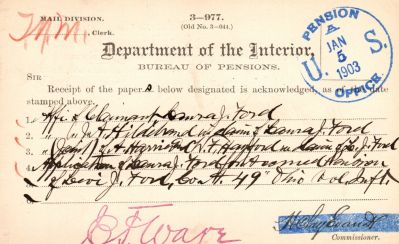 MAIL DIVISION.
3—977.
(Old No. 3—044.)
Clerk.
PENSION
A
JAN
5
U. S.
1903
OFFICE.
Department of the Interior,
BUREAU OF PENSIONS.
SIR
Receipt of the papers below designated is acknowledged, as of the date
stamped above.
1. Affi of Claimant Laura J. Ford
2. " " J Hildebrand in claim of Laura J. Ford
3. Harris & Hanford in claim of L. J. Ford
4. Application of Laura J. Ford for accrued pension
of Levi J. Ford, Co. H. 49" Ohio Vol. Inft.
E. F. Ware
Commissioner.